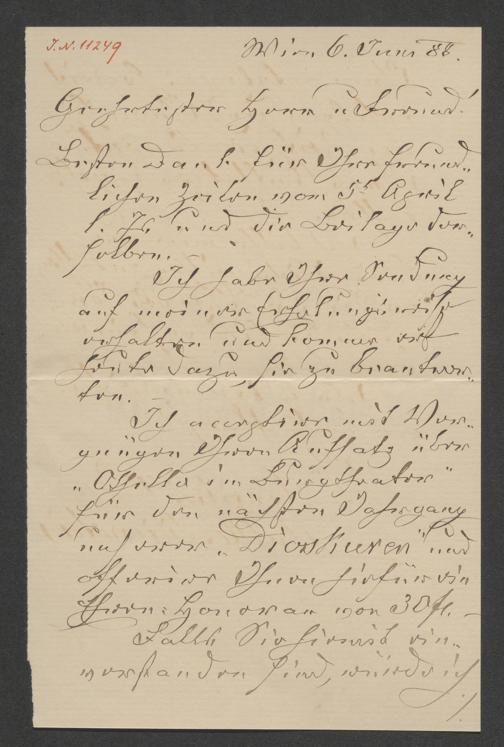 J.N. 11249
Wien 6. Juni 88.
Geehrtester Herr u Freund!
Besten Dank für Ihre freund-
lichen Zeilen vom 5t April
l. J. und die Beilage der-
selben. –
Ich habe Ihre Sendung
auf meiner Erholungsreise
erhalten und komme erst
heute dazu, sie zu beantwor-
ten. –
Ich acceptire mit Ver-
gnügen Ihren Aufsatz über
„Othello im Burgtheater"
für den nächsten Jahrgang
unserer „Dioskuren" und
offerire Ihnen hiefür ein
Honorar von 30 fl. –
Falls Sie hiemit ein-
verstanden sind, würde ich